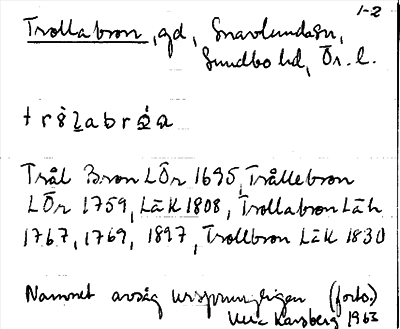 1-2
Trollabron, gd, Snavlunda sn,
Sundbo hd, Ör. l.
Trål Bron LÖr 1695, Trållebron
LÖr 1759, LäK 1808, Trollabron LäH
1767, 1769, 1897, Trollbron LäK 1830
Namnet avsåg ursprungligen (forts.)
Karlberg 1963